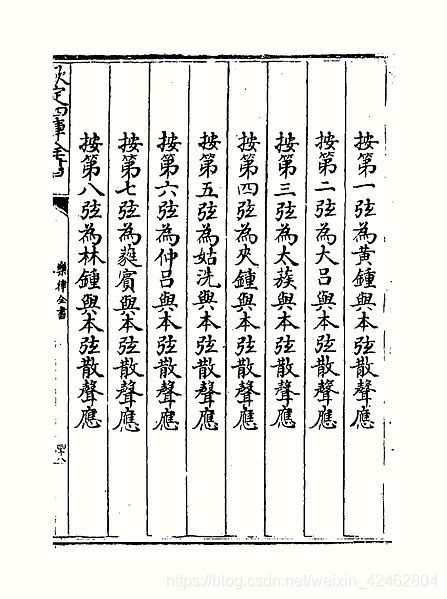 按第一弦為黃鍾與本弦散聲應
按第二弦為大呂與本弦散聲應
按第三弦為太蔟與本弦散聲應
按第四弦為夾鍾與本弦散聲應
按第五弦為姑洗與本弦散聲應
按第六弦為仲呂與本弦散聲應
按第七弦為蕤賓與本弦散聲應
按第八弦為林鍾與本弦散聲應
欽定四庫全書
樂律全書
https://blog.csdn.net/weixin_42462804